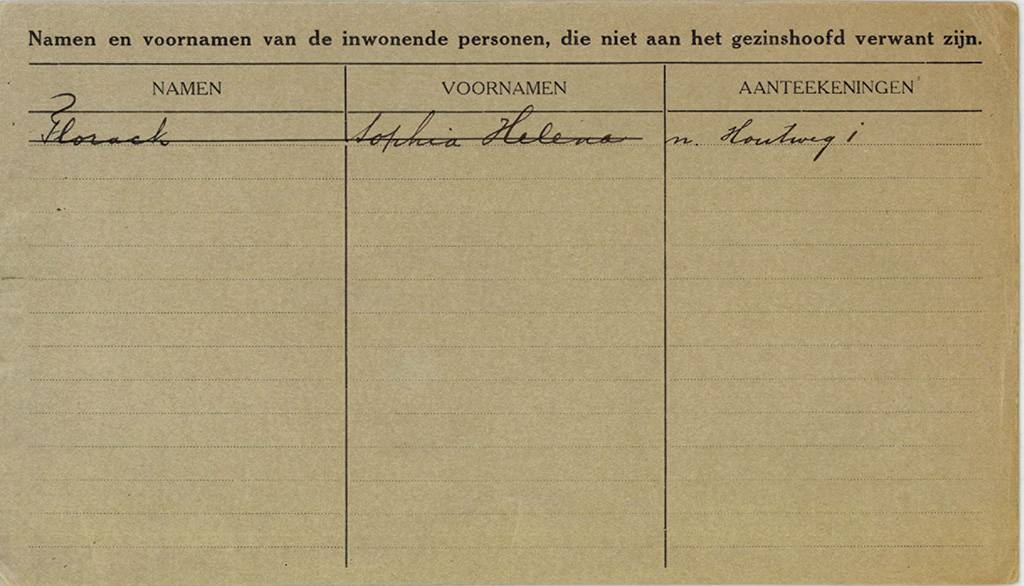 Namen en voornamen van de inwonende personen, die niet aan het gezinshoofd verwant zijn.
NAMEN VOORNAMEN AANTEEKENINGEN
Florack Sophia Helena n. Houtweg 1